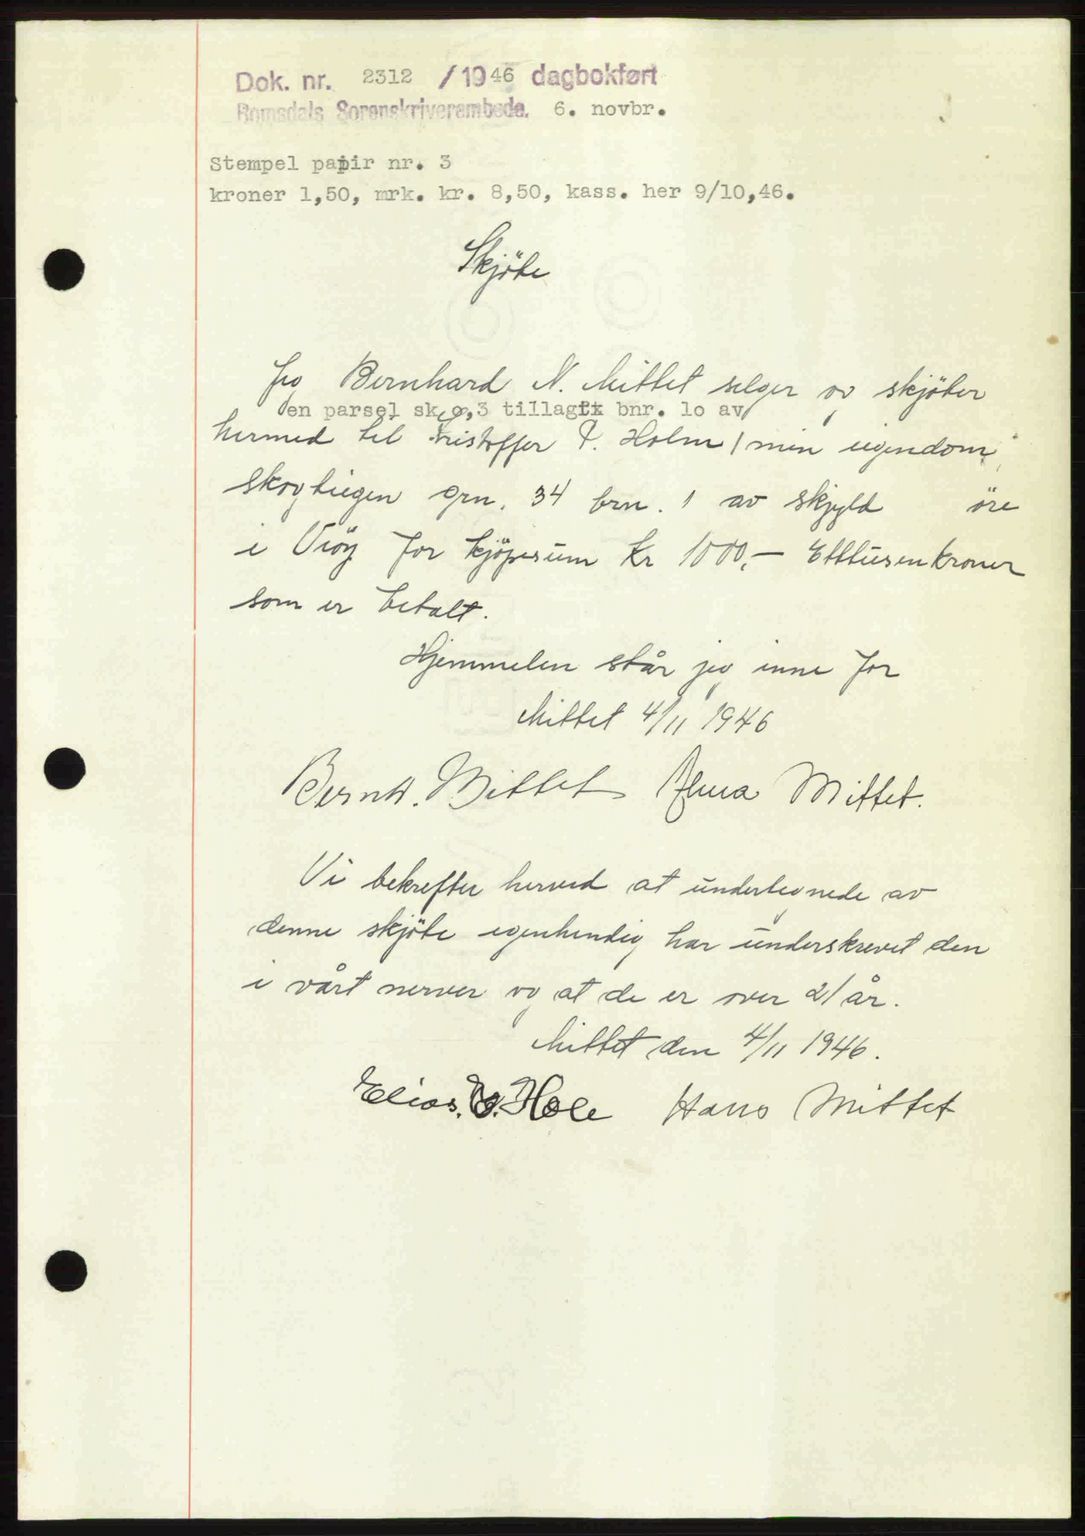 Dok. nr. 2312 / 1946 dagbokført
Romsdals Sorenskriverembede. 6. novbr.
Stempel papir nr. 3
kroner 1,50, mrk. kr. 8,50, kass. her 9/10,46.
Skjöte
Jeg Bernhard N. Mittet selger og skjöter
en parsel sk 0,3 tillagt bnr. 10 av
hermed til Kristoffer P. Holm / min eigendom
skogteigen grn. 34 brn. 1 av skjyld öre
i Vöy for kjöpesum Kr 1000,- Ettusenkroner
som er betalt.
Hjemmelen står jeg inne for
Mittet 4/11 1946
Bernh. Mittet Mittet.
Vi bekrefter herved at undertegnede av
denne skjöte egenhendig har underskrevet den
i vårt nerver og at de er over 21 år.
Mittet den 4/11 1946.
Elias. E. Hole Hans Mittet